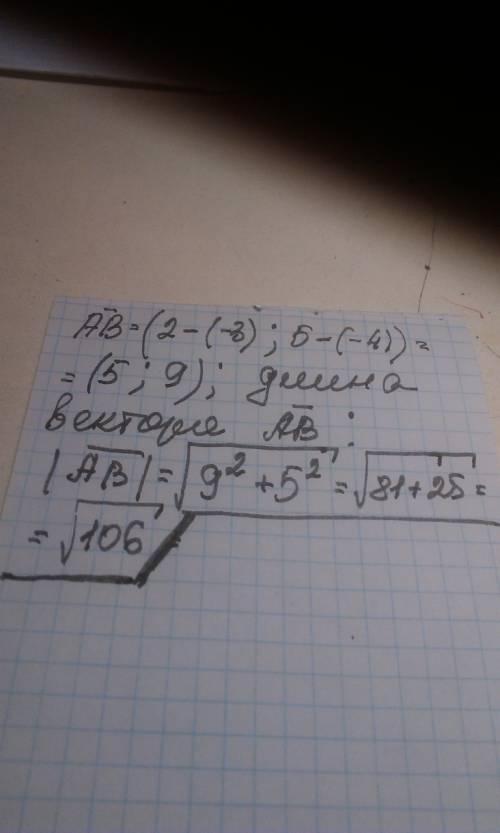 A̅B̅=(2-(-3); 5-(-4))=
=(5; 9); длина
вектора A̅B̅:
|A̅B̅|=√(9²+5²)=√(81+25)=
=√106